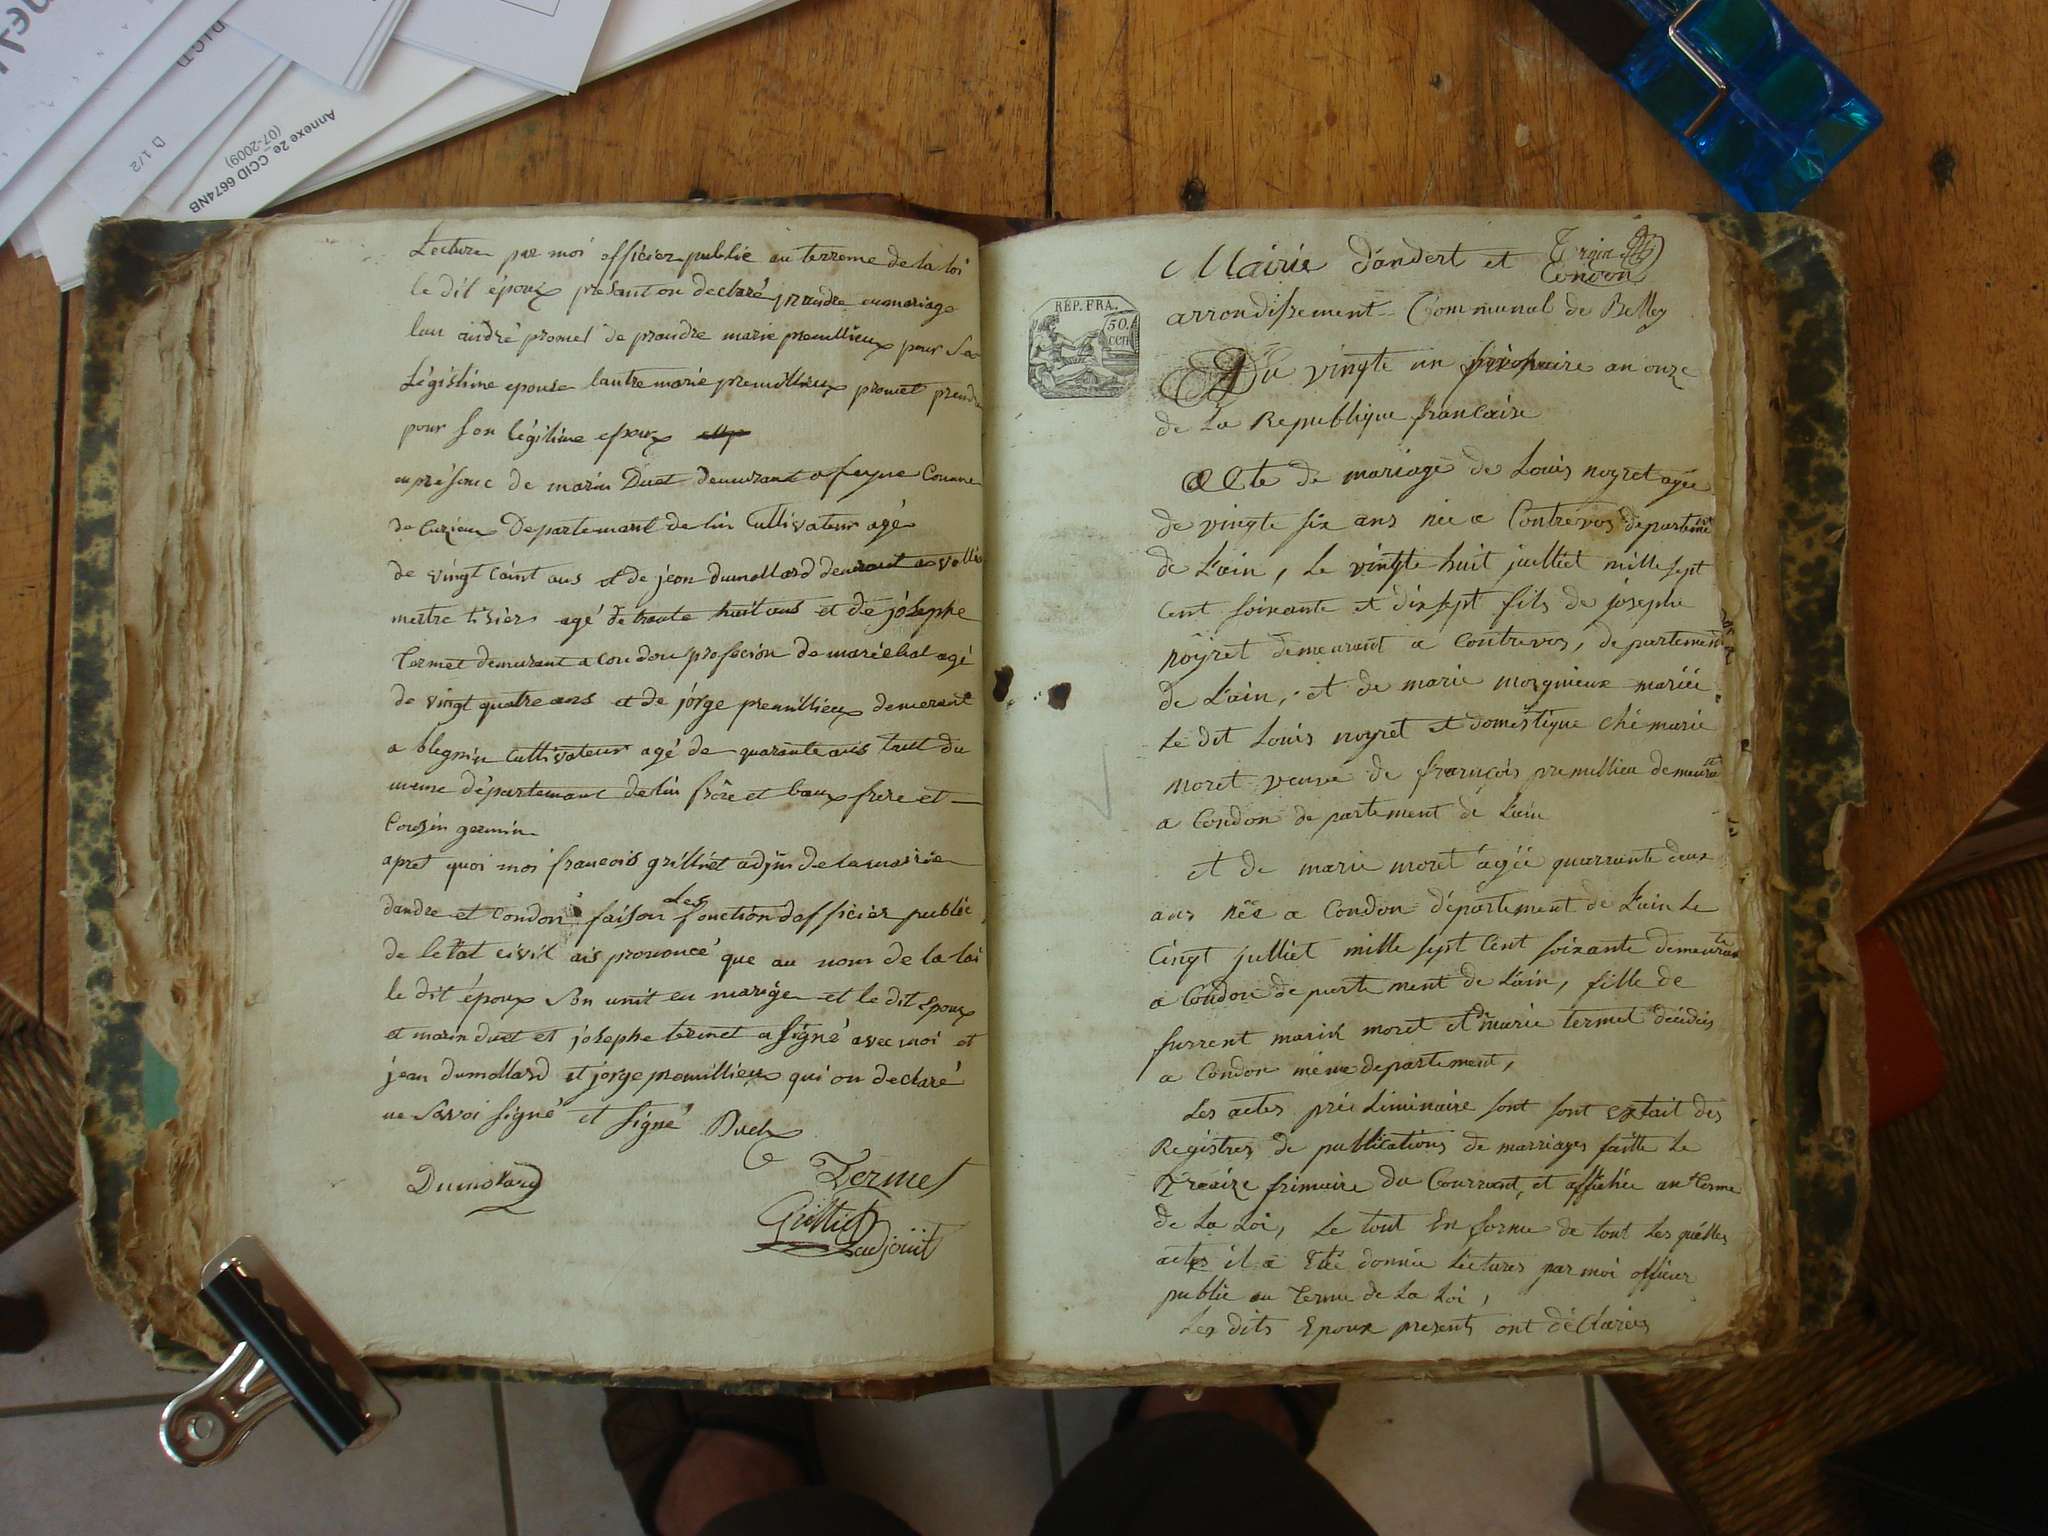 D I C.T
D 1/2
Annexe 2e_CCID 6674NB
(07-2009)
Lecture par moi officier public au terreme de la loi
le dit époux présant on declaré prandre en mariage
lun andré promet de prandre marie premillieux pour sa
Légistime epouse lautre marie premillieux promet prendre
pour son légitime epoux
en présence de marin Duet demeurant a Comune
de Cuzieu Departemant de lin Cultivateur agé
de vingt Caint ans et de jean dumollard demeurant a
mestre tisier agé de trante huit ans et de josephe
termet demeurant a Condon profecion de maréchal agé
de vingt quatre ans et de jorge premillieux demerant
a blegnin Cultivateur agé de quarante ans tout du
meme départemant de lin frere et baux frere et
Cousin germin
apret quoi moi francois grilliet adjoin de la mairie
dandre et Condon faison Les fonction dofficier public
de letat civil ais prononcé que au nom de la loi
le dit époux son unit en marige et le dit Epoux
et marin duet et josephe termet a signé avec moi et
jean dumollard et jorge premillieux qui on declaré
ne savoi signé et signé Duet
Termet
Dumolard
Grilliet
adjouit
Mairie d'andert et Condon
arrondissement Communal de Belley
RÉP. FRA.
50.
cen
Du vingte un frimaire an onze
de La Republique francaise
Acte de mariage de Louis noyret agée
de vingte six ans née a Contrevos departement
de L'ain, Le vingte huit juilliet mille sept
cent soixante et dix sept fils de josephe
noyret demeurant a Contrevos, departement
de L'ain, et de marie morgnieux mariée
Le dit Louis noyret et domestique ché marie
moret veuve de françois premillieu demeurante
a Condon departement de L'ain
et de marie moret agée quarrante deux
ans née a Condon département de L'ain Le
Cingt julliet mille sept Cent soixante demeurante
a Condon departement de L'ain, fille de
furrent marin moret et de marie termet décédés
a Condon même departement,
Les actes préliminaire sont sont extait des
Registres de publications de marriages faitte Le
Treaize frimaire du Courrant, et affichée au terme
de La Loi, Le tout En forme de tout Les quélles
actes il a Eté donnée Lectures par moi officier
public au terme de La Loi,
Les dits Epoux presents ont déclarées